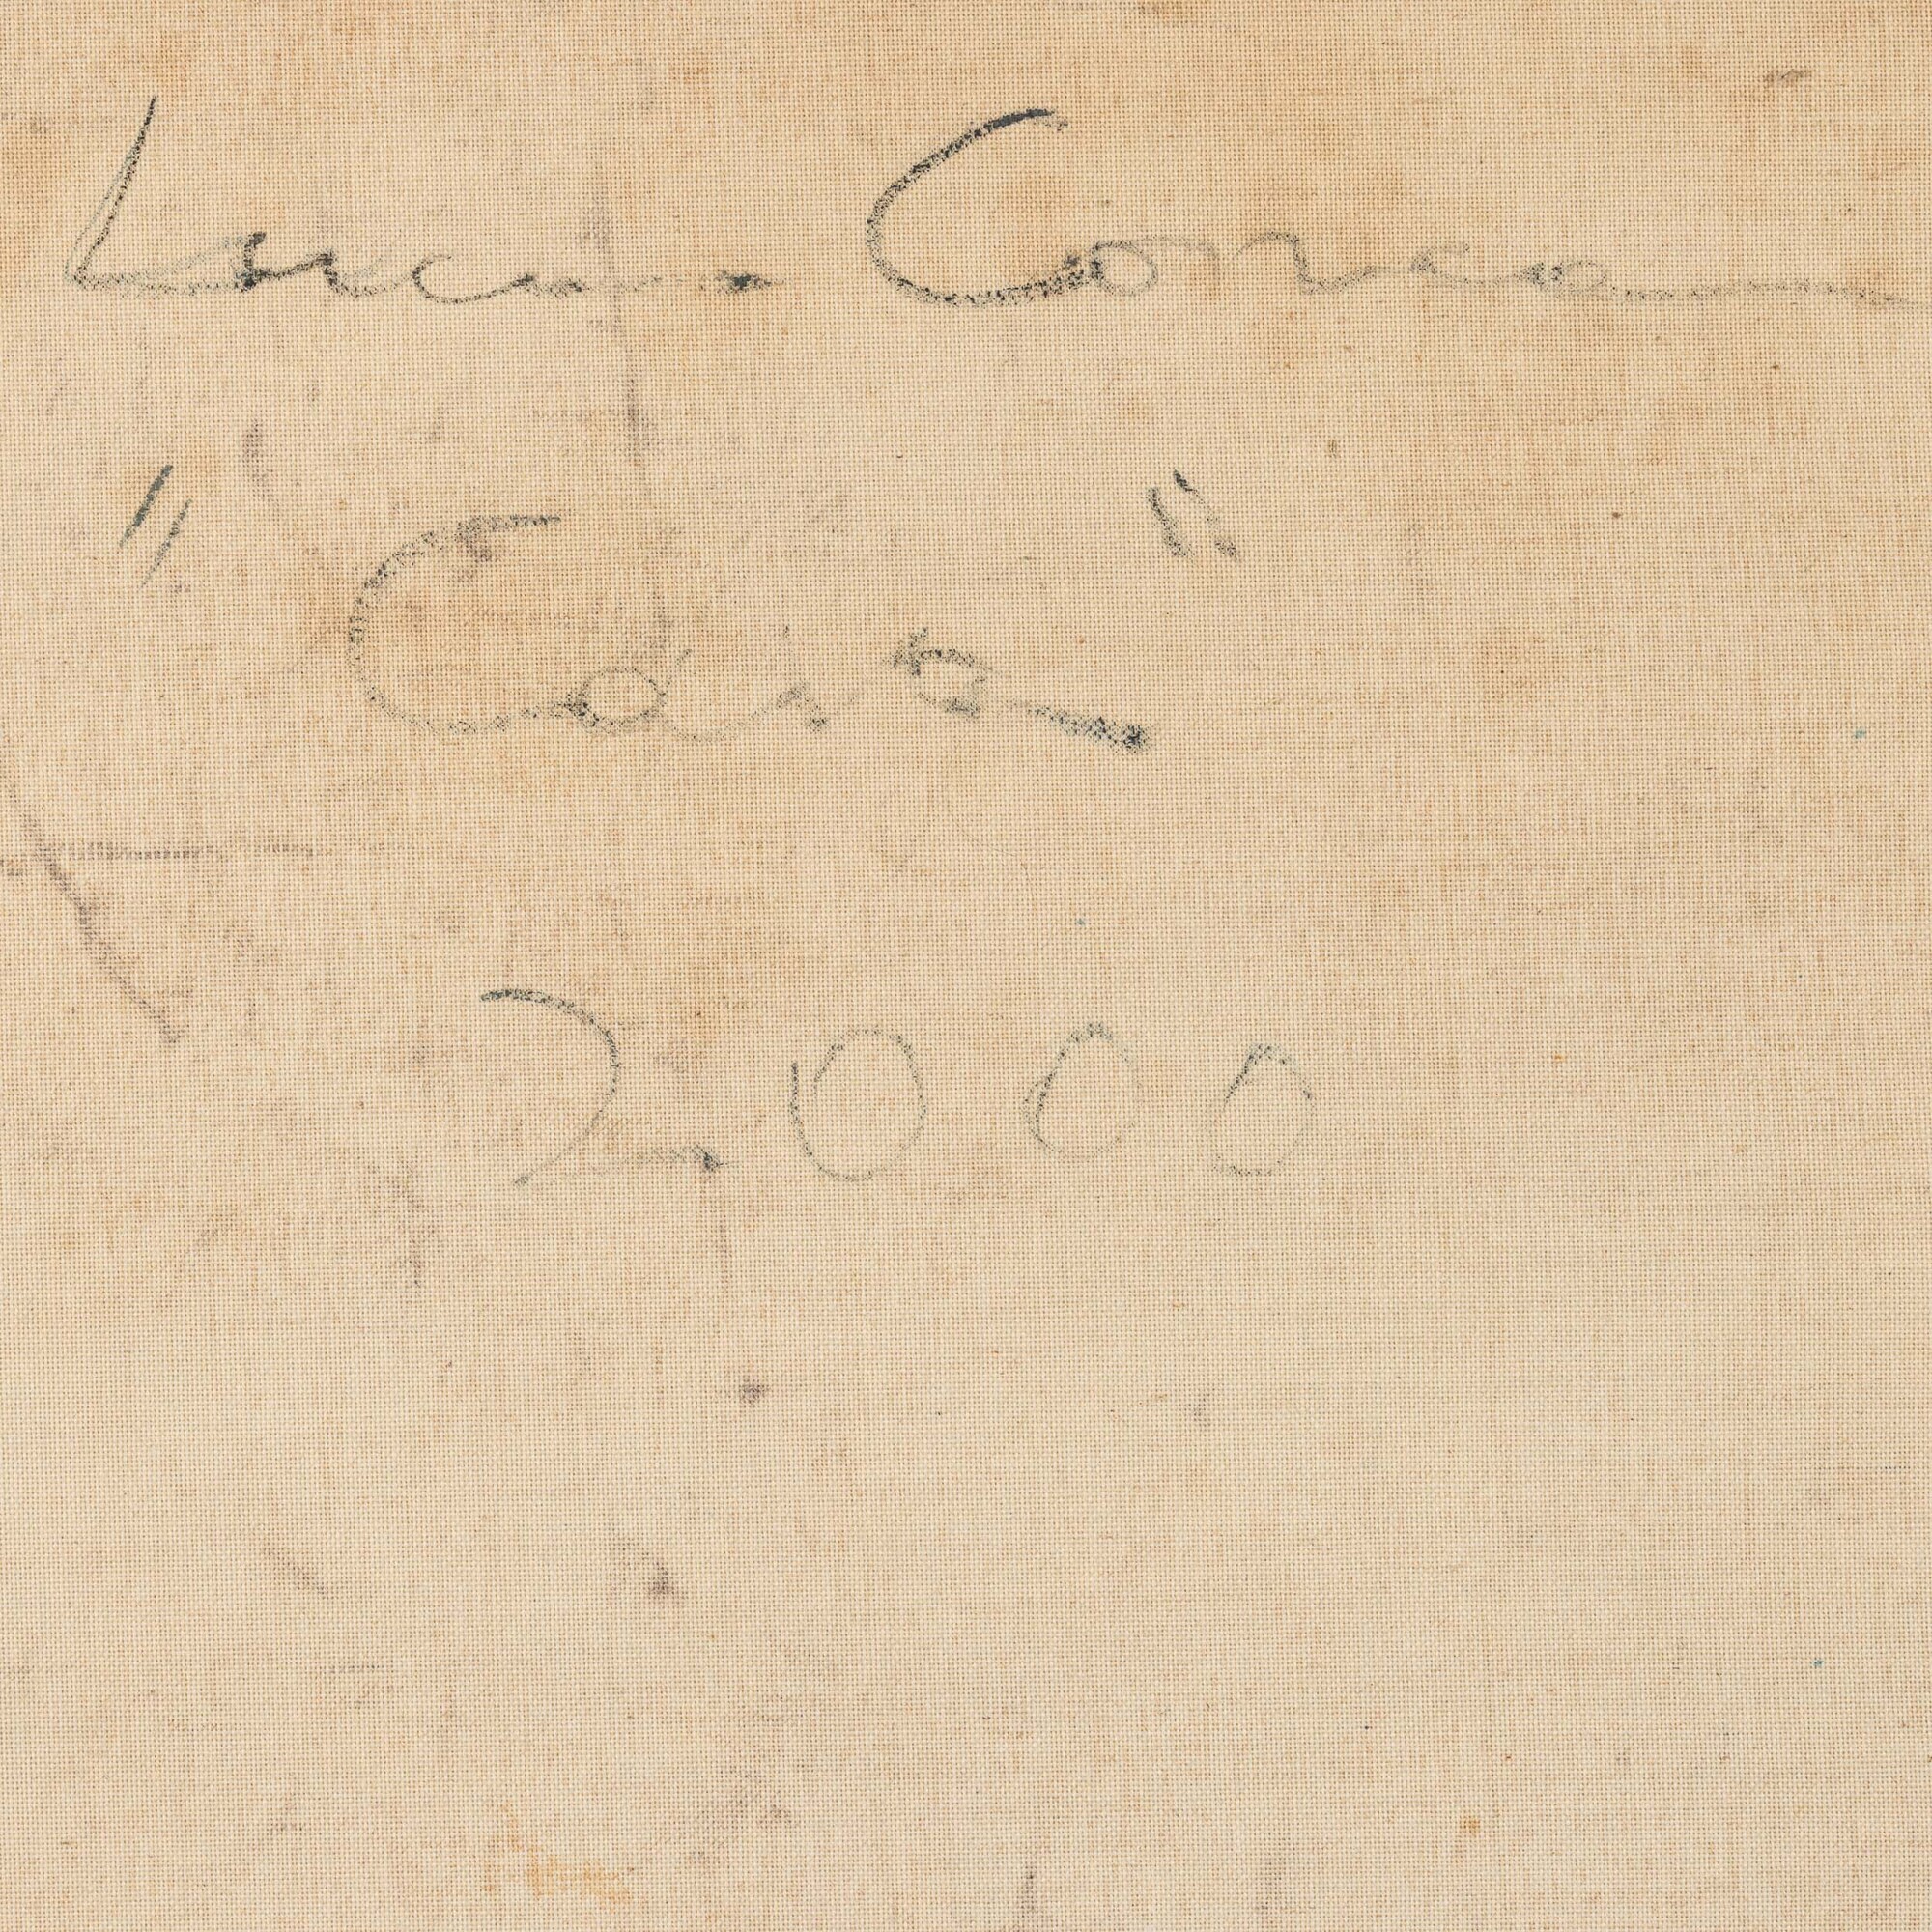 Lucu Corcea
"Casa"
2.000